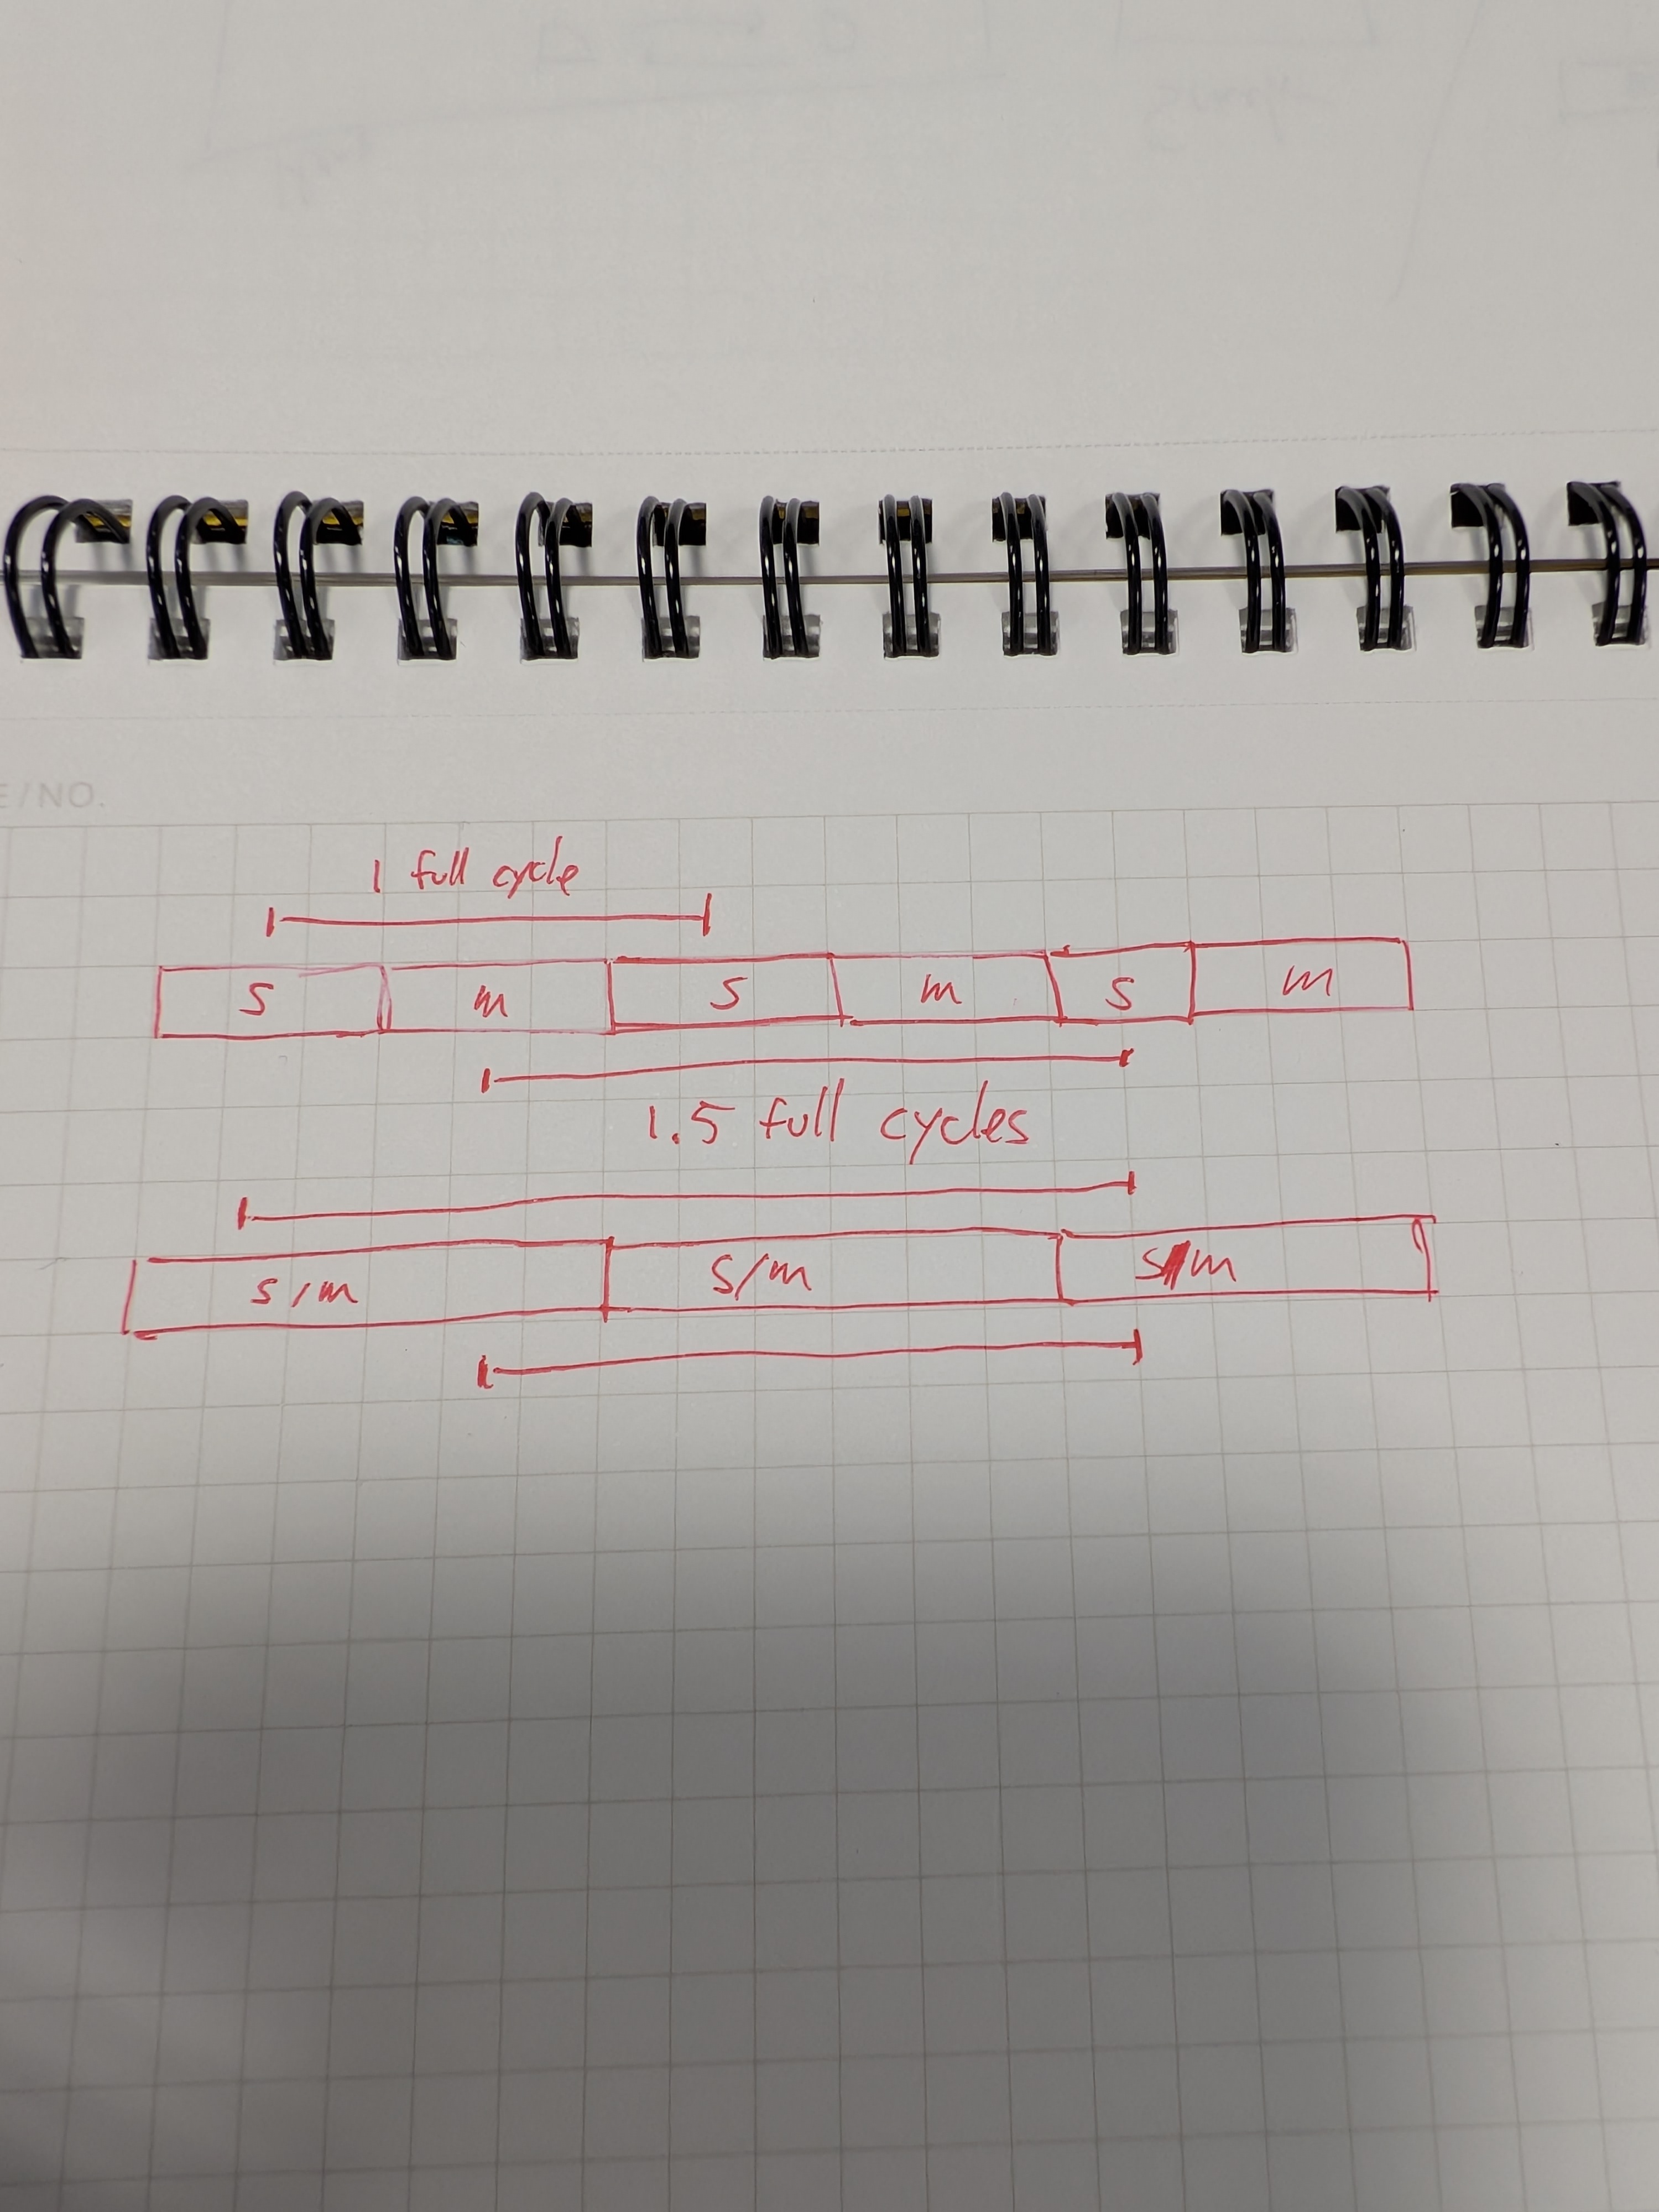 E/NO.
1 full cycle
S m S m S m
1.5 full cycles
S/m S/m S/m